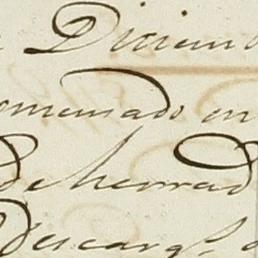 Diciem
omensado en
de herrad
descarg.